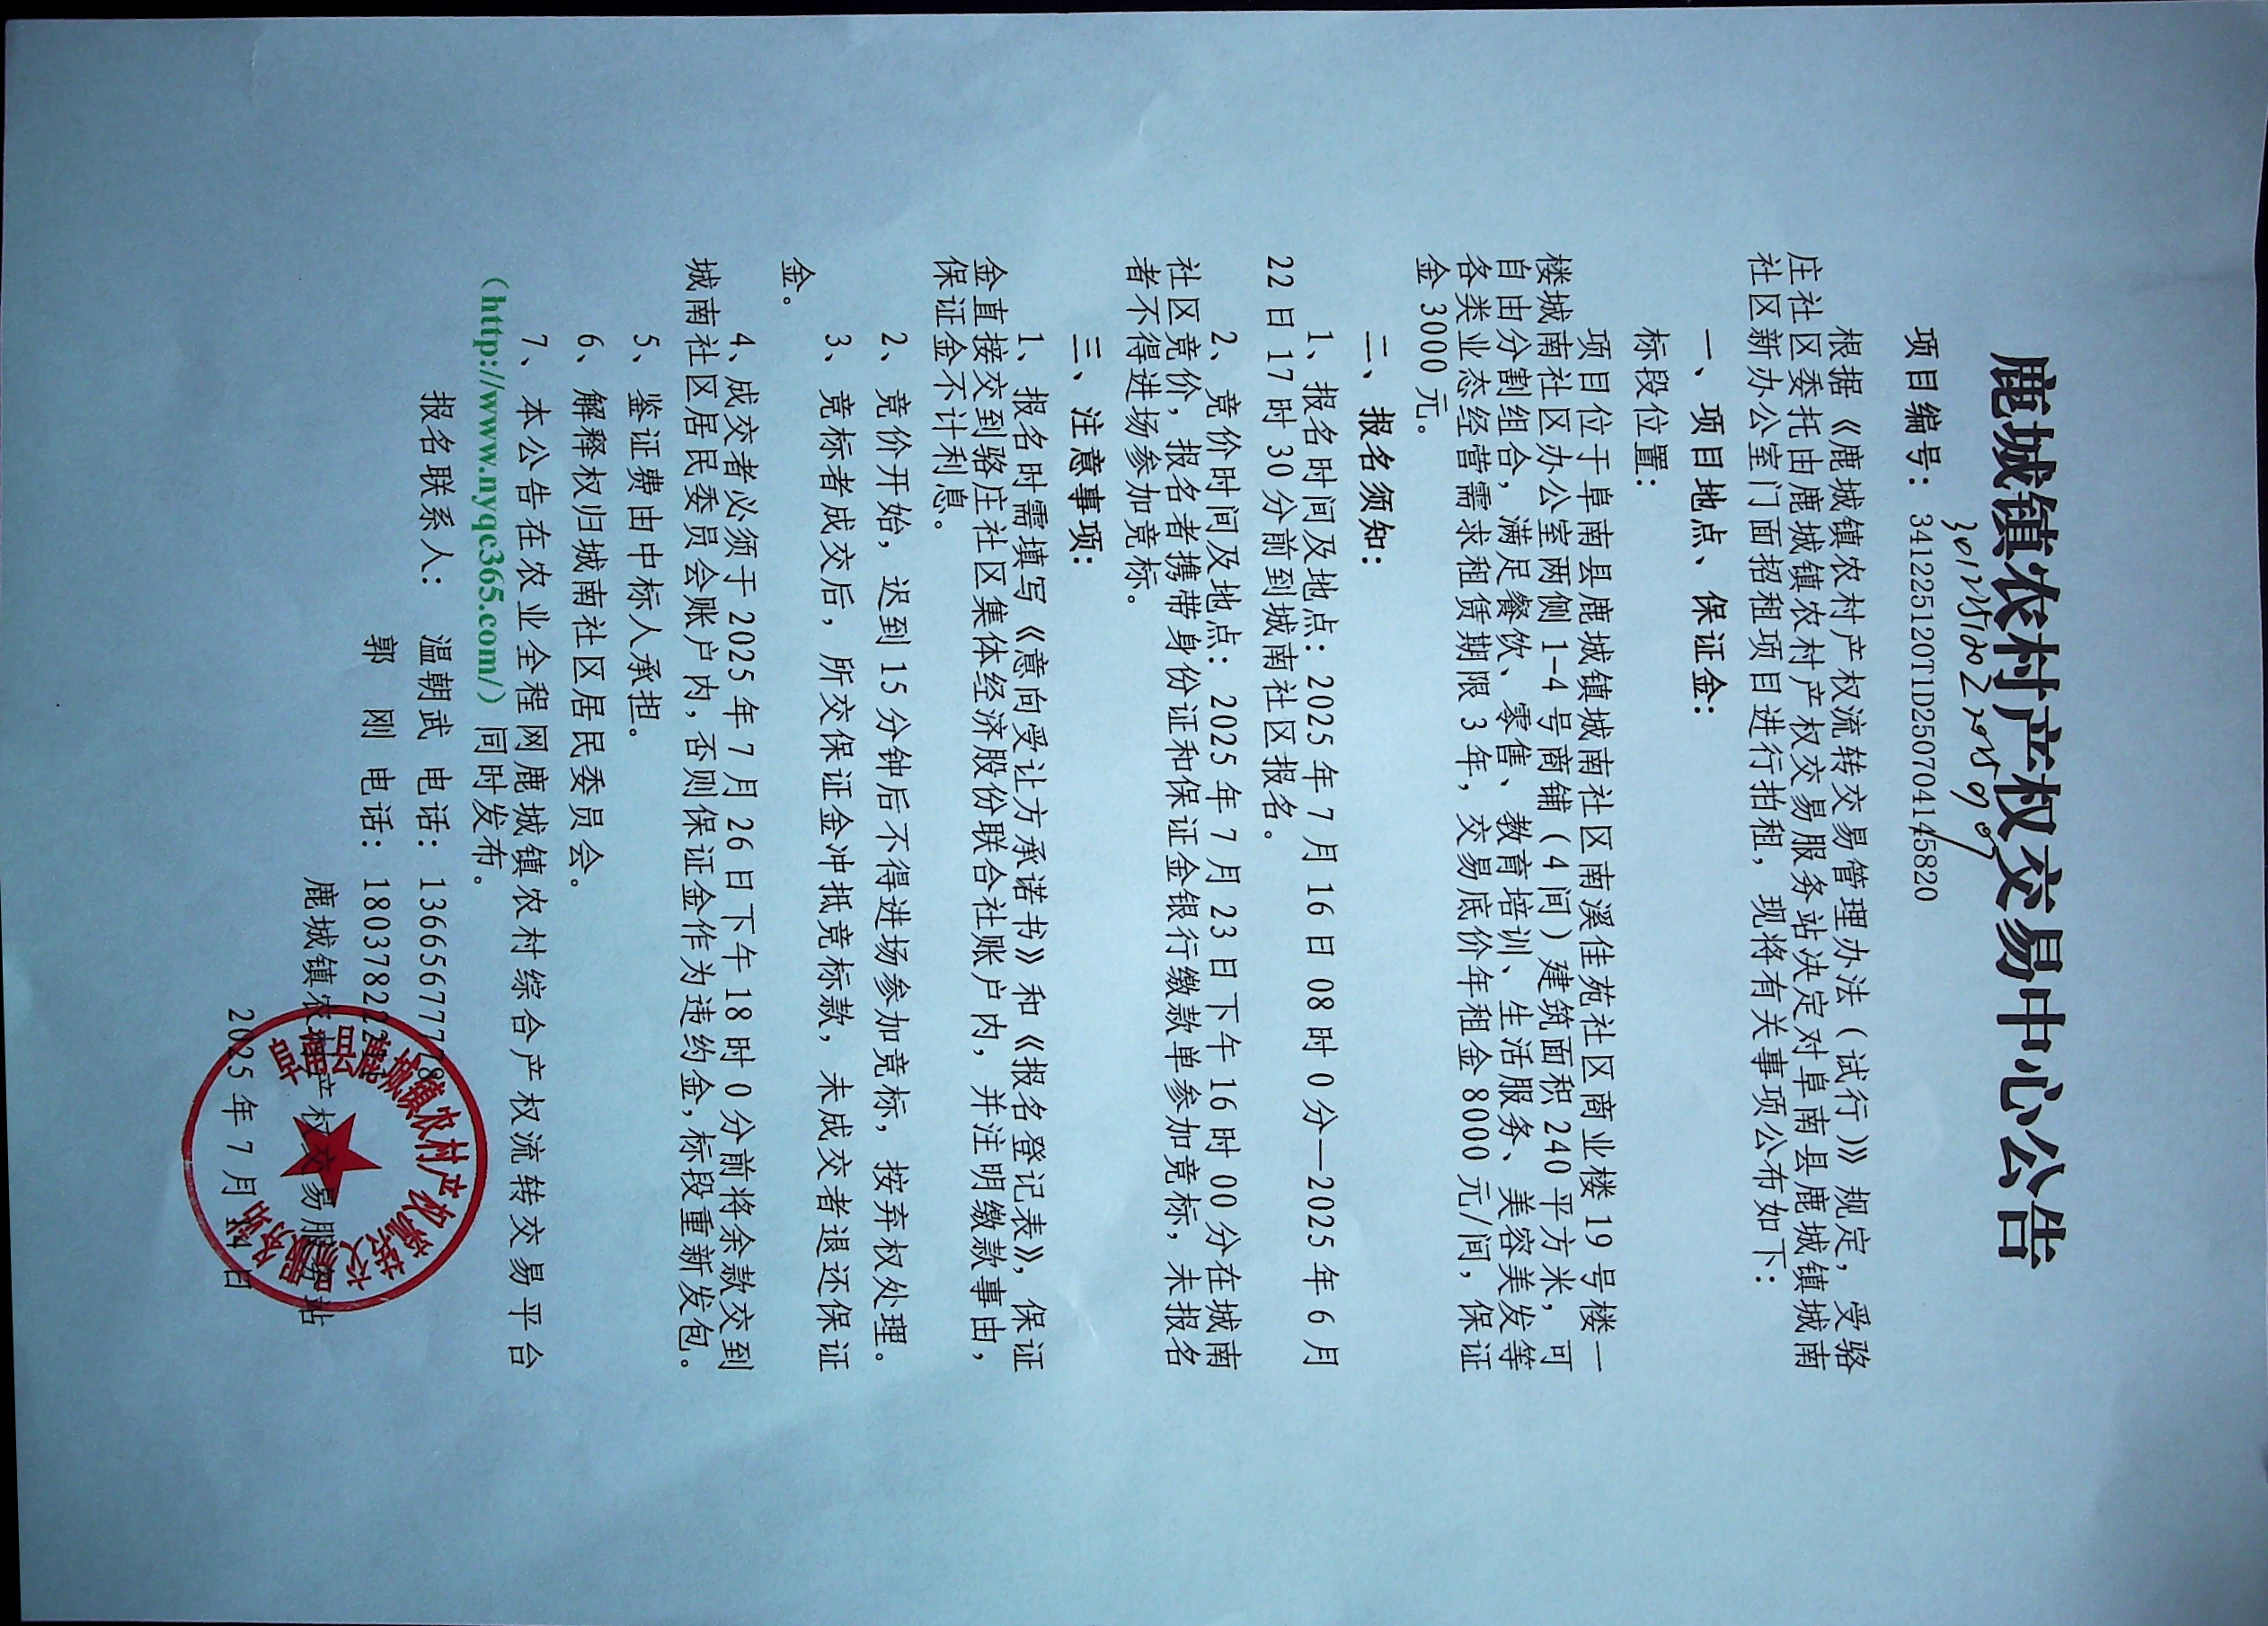 鹿城镇农村产权交易中心公告
项目编号：341225120T1D250704145820
根据《鹿城镇农村产权流转交易管理办法（试行）》规定，受骆
庄社区委托由鹿城镇农村产权交易服务站决定对阜南县鹿城镇城南
社区新办公室门面招租项目进行拍租，现将有关事项公布如下：
一、项目地点、保证金：
标段位置：
项目位于阜南县鹿城镇城南社区南溪佳苑社区商业楼 19 号楼一
楼城南社区办公室两侧 1-4 号商铺（4 间）建筑面积 240 平方米，可
自由分割组合，满足餐饮、零售、教育培训、生活服务、美容美发等
各类业态经营需求租赁期限 3 年，交易底价年租金 8000 元/间，保证
金 3000 元。
二、报名须知：
1、报名时间及地点：2025 年 7 月 16 日 08 时 0 分—2025 年 6 月
22 日 17 时 30 分前到城南社区报名。
2、竞价时间及地点：2025 年 7 月 23 日下午 16 时 00 分在城南
社区竞价，报名者携带身份证和保证金银行缴款单参加竞标，未报名
者不得进场参加竞标。
三、注意事项：
1、报名时需填写《意向受让方承诺书》和《报名登记表》，保证
金直接交到骆庄社区集体经济股份联合社账户内，并注明缴款事由，
保证金不计利息。
2、竞价开始，迟到 15 分钟后不得进场参加竞标，按弃权处理。
3、竞标者成交后，所交保证金冲抵竞标款，未成交者退还保证
金。
4、成交者必须于 2025 年 7 月 26 日下午 18 时 0 分前将余款交到
城南社区居民委员会账户内，否则保证金作为违约金，标段重新发包。
5、鉴证费由中标人承担。
6、解释权归城南社区居民委员会。
7、本公告在农业全程网鹿城镇农村综合产权流转交易平台
（http://www.nyqc365.com/）同时发布。
报名联系人： 温朝武 电话：13665677778
郭 刚 电话：
鹿城镇农村产权交易服务站
2025 年 7 月 14 日